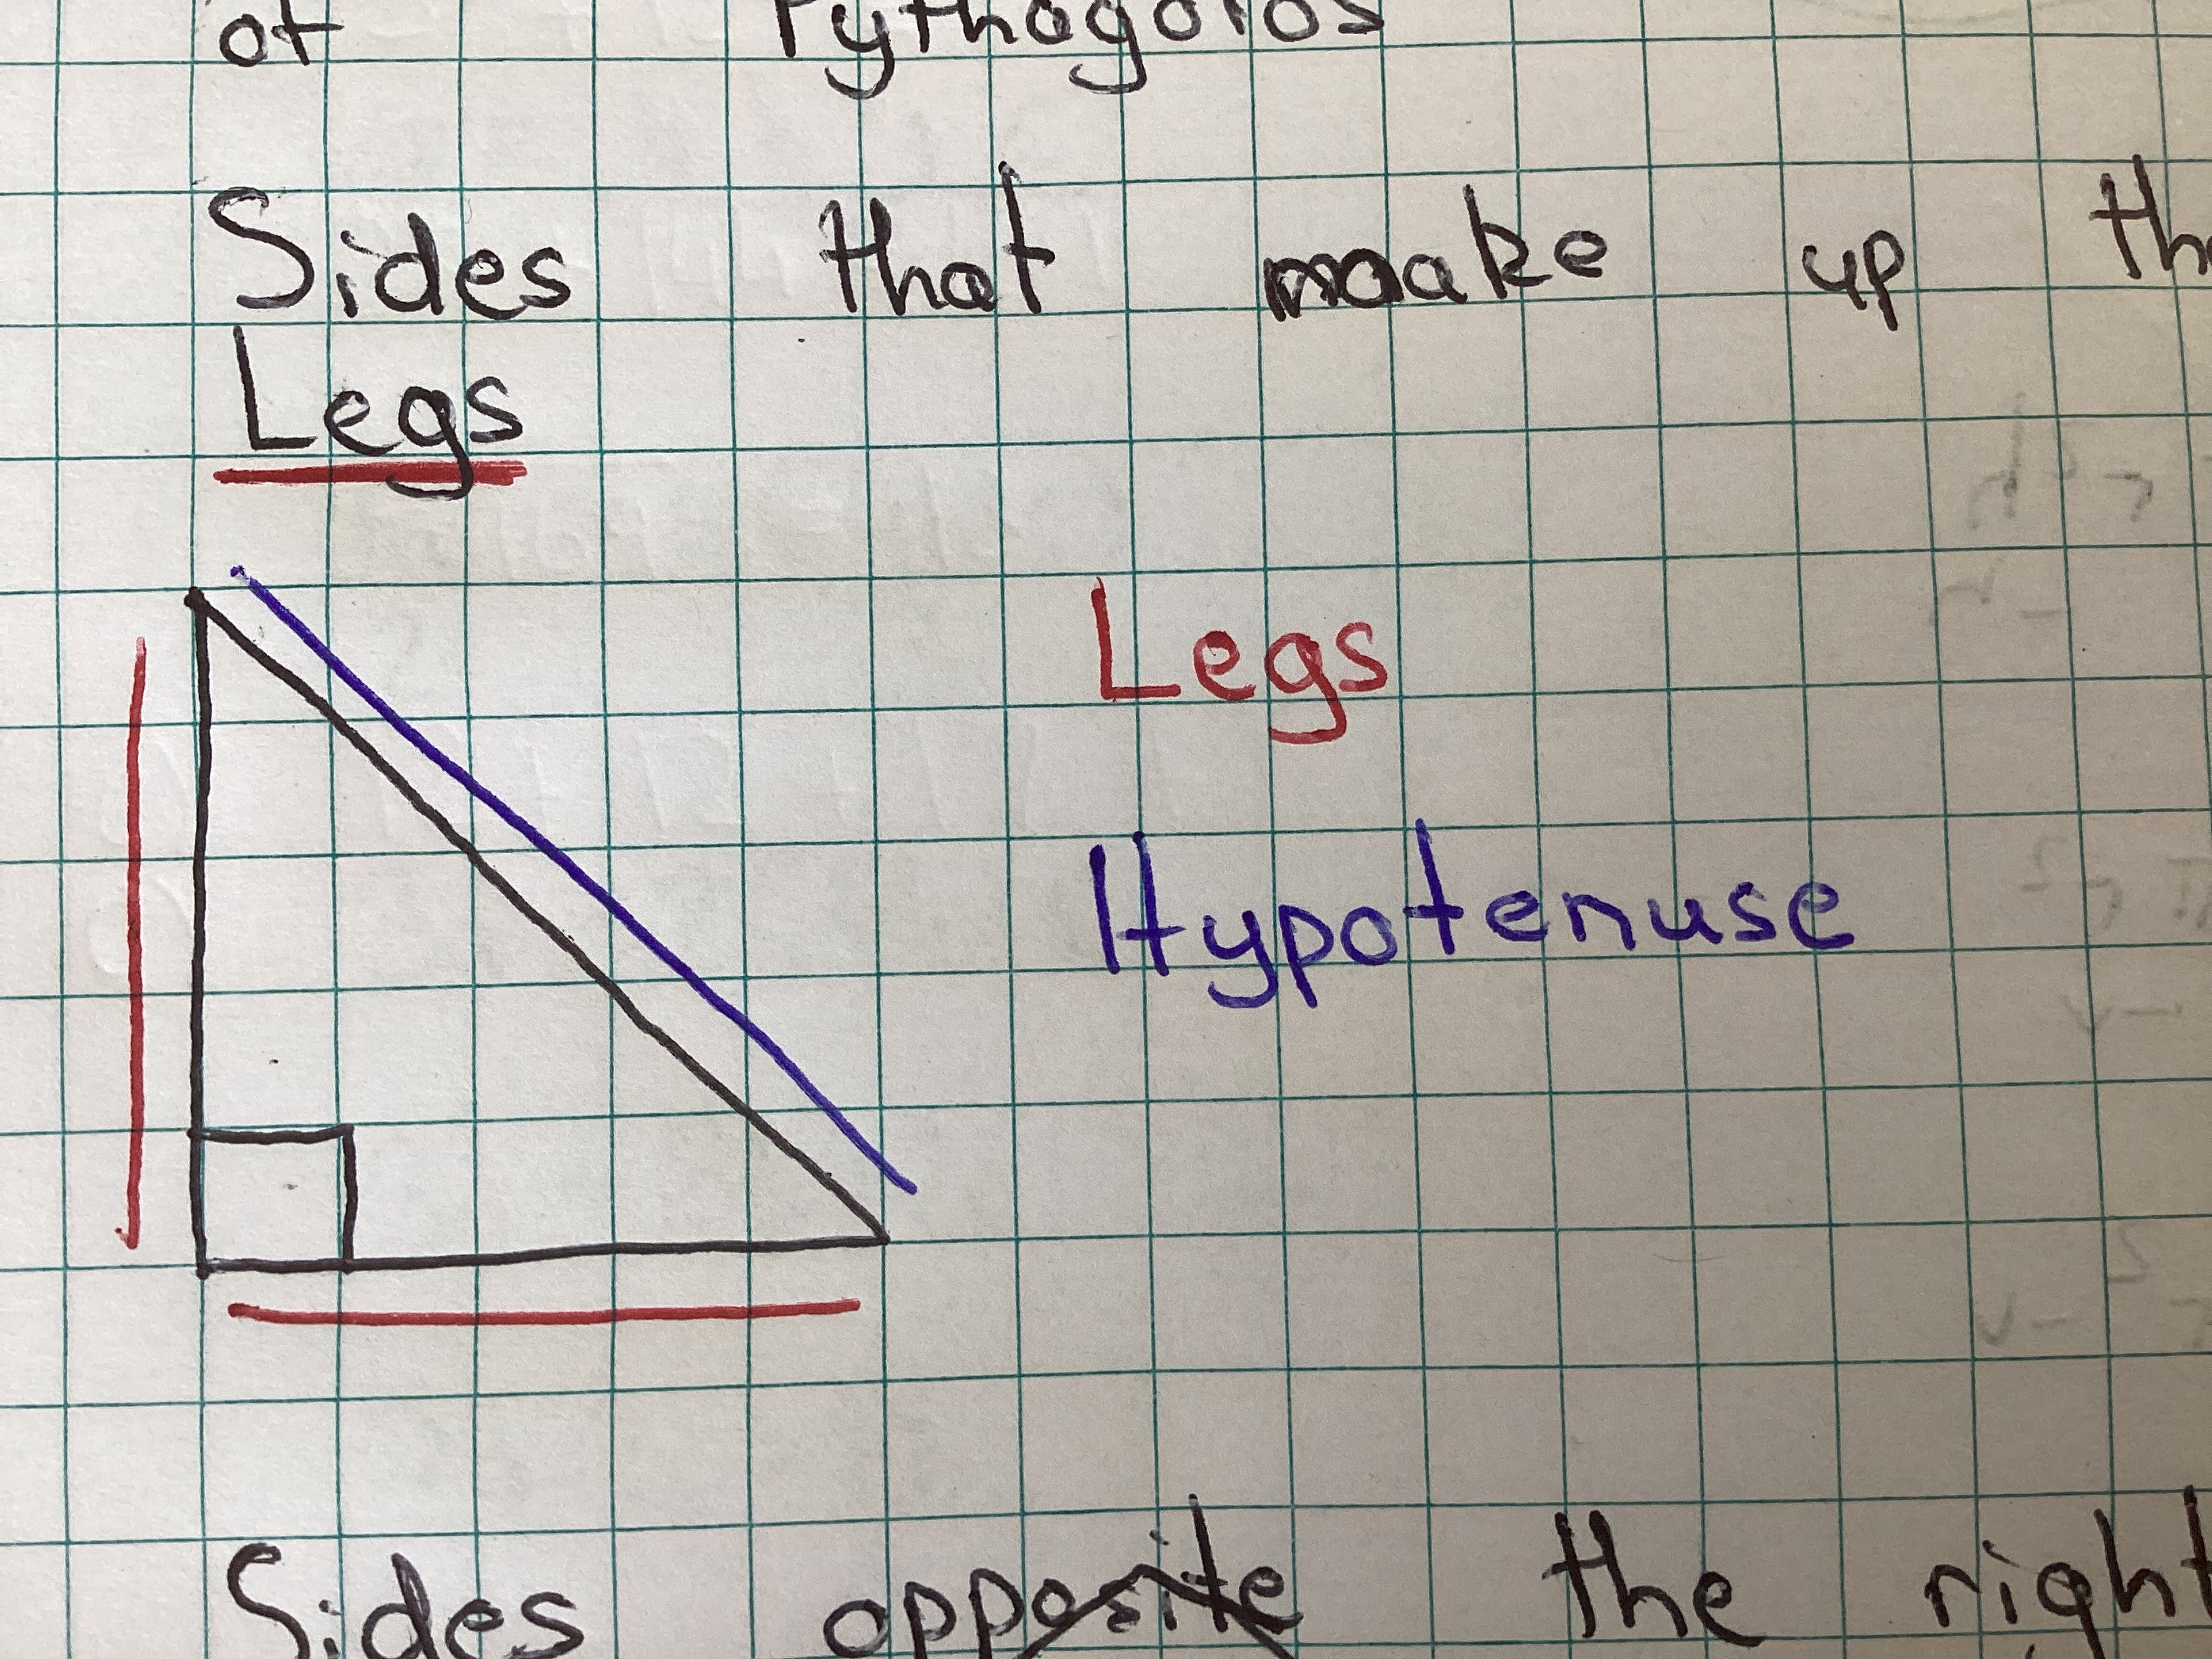 of Pythagoras
Sides that make up
Legs
Legs
Hypotenuse
Sides opposite the right